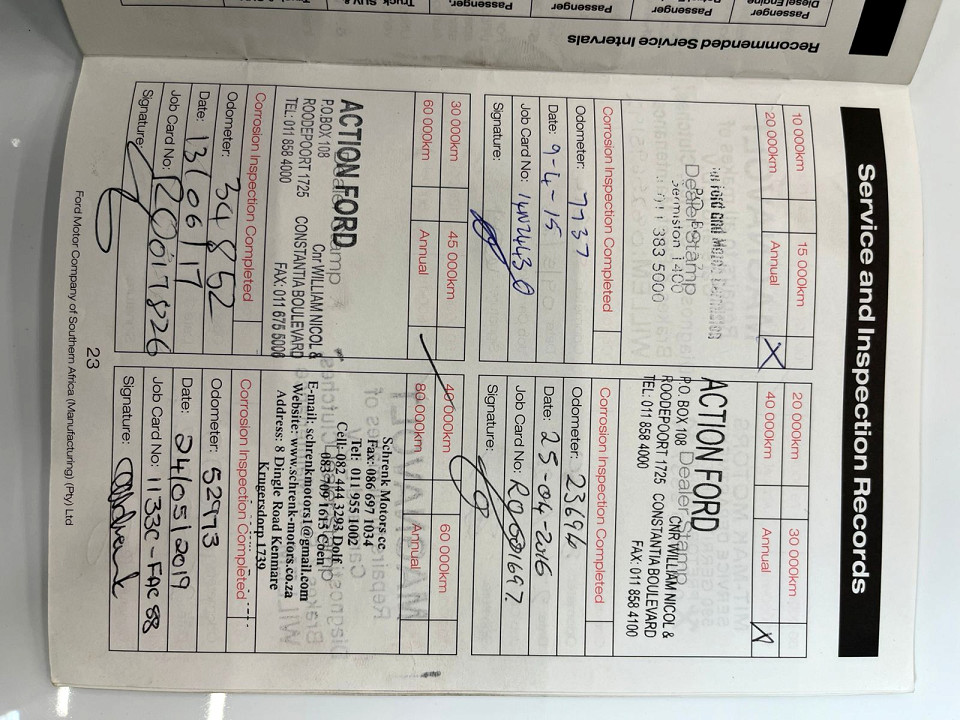 Recommended Service Intervals
Passenger
Diesel Engine
Passenger
Passenger
Passenger
Service and Inspection Records
10 000km
15 000km
20 000km
Annual
X
Dealer Stamp
Corrosion Inspection Completed
Odometer: 7737
Date: 9-4-15
Job Card No:
Signature:
20 000km
30 000km
40 000km
Annual
X
ACTION FORD
P.O. BOX 108
CNR WILLIAM NICOL &
ROODEPOORT 1725
CONSTANTIA BOULEVARD
TEL: 011 858 4000
FAX: 011 858 4100
Corrosion Inspection Completed
Odometer: 23694
Date: 25-04-2016
Job Card No:
Signature:
30 000km
45 000km
60 000km
Annual
ACTION FORD
P.O. BOX 108
Cnr WILLIAM NICOL &
ROODEPOORT 1725
CONSTANTIA BOULEVARD
TEL: 011 858 4000
FAX: 011 675 5006
Corrosion Inspection Completed
Odometer: 34852
Date: 13/06/17
Job Card No:
Signature:
40 000km
60 000km
80 000km
Annual
Schrenk Motors cc
Fax: 086 697 1034
Tel: 011 955 1002
Cell: 082 444 3293 Dolf
083 709 1615 Coen
E-mail: schrenkmotors1@gmail.com
Website: www.schrenk-motors.co.za
Address: 8 Dingle Road Kenmare
Krugersdorp 1739
Corrosion Inspection Completed
Odometer: 52973
Date: 24/05/2019
Job Card No: 1133C-FAC 88
Signature:
23
Ford Motor Company of Southern Africa (Manufacturing) (Pty) Ltd